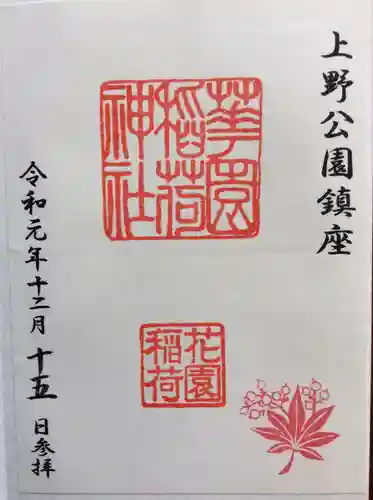 上野公園鎮座
華園
稲荷
神社
花園
稲荷
令和元年十二月十五日参拝